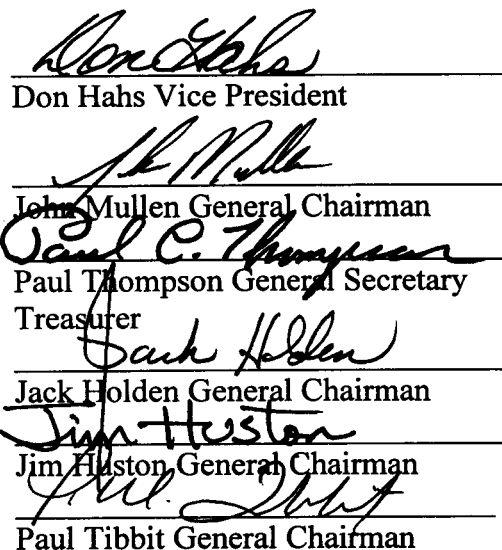 Don Hahs
Don Hahs Vice President
John Mullen
John Mullen General Chairman
Paul C. Thompson
Paul Thompson General Secretary
Treasurer
Jack Holden
Jack Holden General Chairman
Jim Huston
Jim Huston General Chairman
Tibbit
Paul Tibbit General Chairman